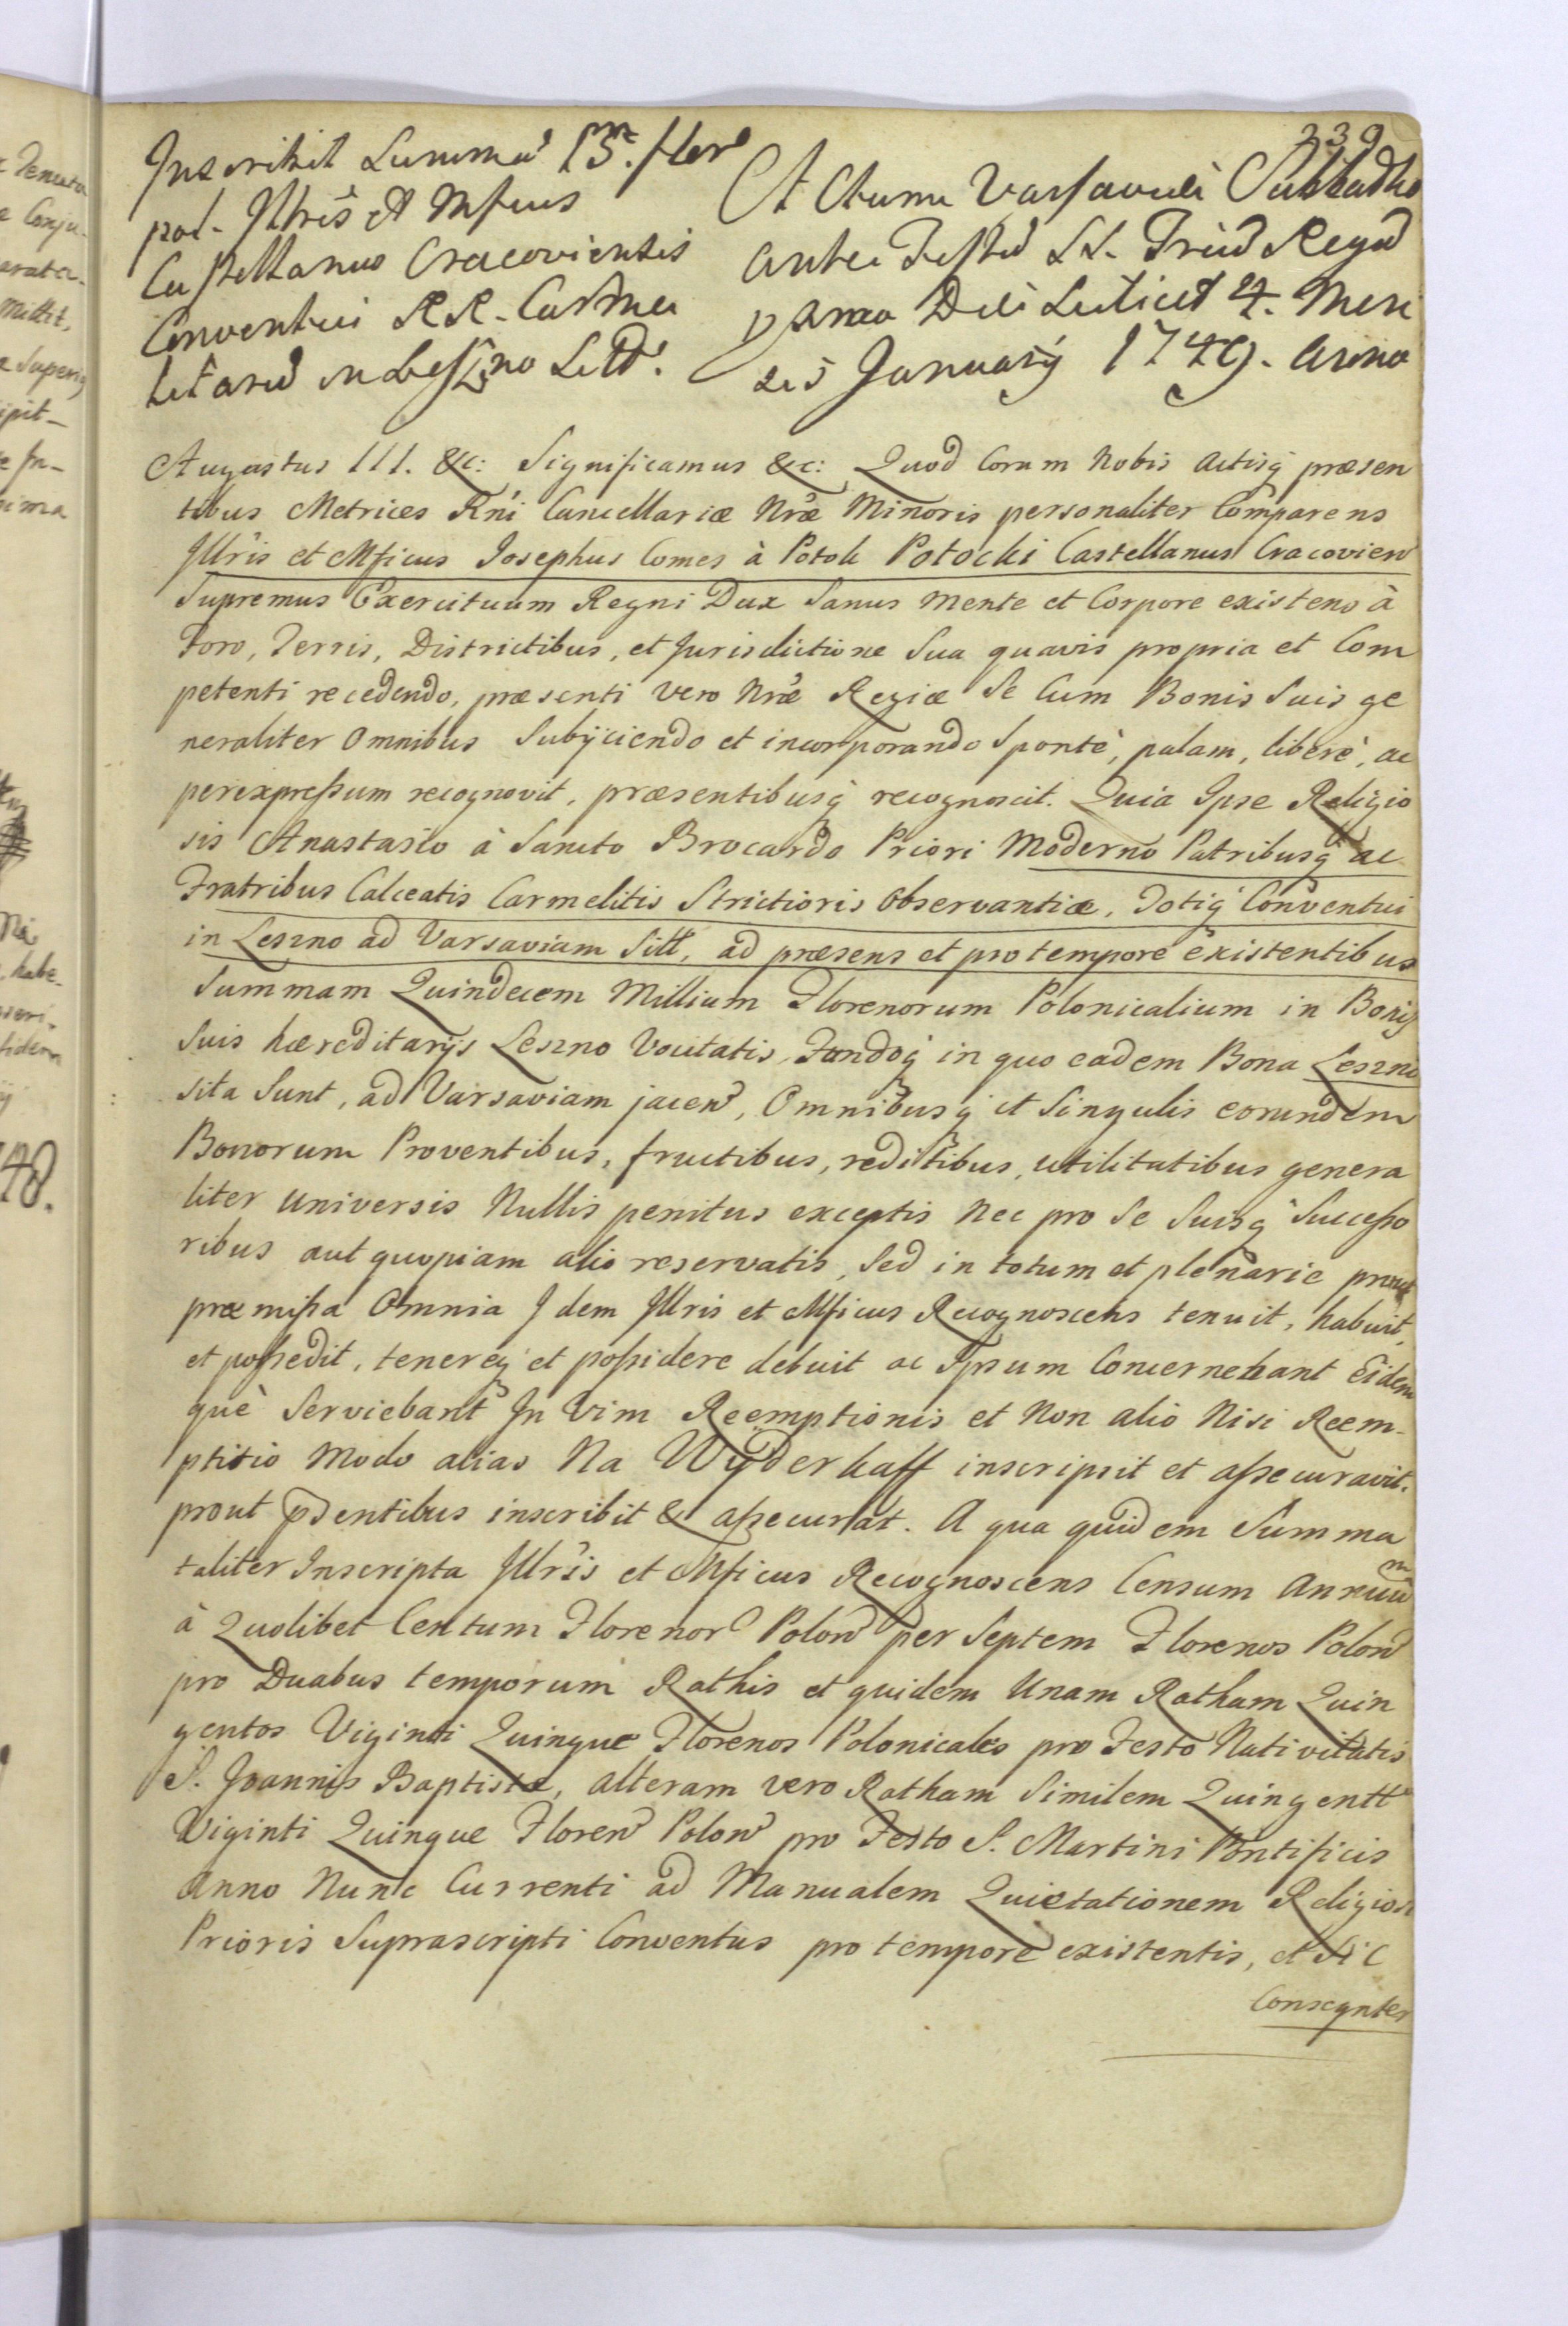 339
Inscribit Summā 15m. flor
pol. Jllris et Mficus
Castellanus Cracoviensis
Conventui RR. Carme
litarū in Leszno Sitt.
Actum Varsaviæ Sabbatho
ante Festū SS. Triū Regū
Die Scilicet 4. Men
sis January 1749. Anno
Augustus III. &c: Significamus &c: Quod Coram Nobis Actisq́ præsen
tibus Metrices Rńi Cancellariæ Nræ Minoris personaliter Comparens
Jllris et Mficus Josephus Comes à Potok Potocki Castellanus Cracovien
Supremus Exercituum Regni Dux Sanus Mente et Corpore existens à
Foro, Terris, Districtibus, et Jurisdictione Sua quavis propria et Com
petenti recedendo, præsenti vero Nræ Regiæ Se Cum Bonis Suis ge
neraliter Omnibus Subijciendo et incorporando Spontè, palam, liberè, ac
perexpreſsum recognovit, præsentibusq́ recognoscit. Quia Ipse Religio
sis Anastasio à Sancto Brocardo Priori Moderno Patribusq́ ac
Fratribus Calceatis Carmelitis Strictioris Observantiæ, Totiq́ Conventui
in Leszno ad Varsaviam Sitt, ad præsens et pro tempore existentibus
Summam Quindecem Millium Florenorum Polonicalium in Bonis
Suis hæreditarijs Leszno Vocitatis, Fundoq́ in quo eadem Bona Leszno
sita Sunt, ad Varsaviam jacen, Omnibusq́ et Singulis eorundem
Bonorum Proventibus, fructibus, reditibus, utilitatibus genera
liter universis Nullis penitus exceptis Nec pro Se Suisq́ Succeſso
ribus aut quopiam alio reservatis, Sed in totum et plenarie prout
præmiſsa Omnia Jdem Jllris et Mficus Recognoscens tenuit, habuit,
et poſsedit, tenereq́ et poſsidere debuit ac Ipsum Concernebant Eidem
què Serviebant In Vim Reemptionis et Non alio Nisi Reem-
ptitio Modo alias Na Wÿderkaff inscripsit et aſsecuravit.
prout p̄sentibus inscribit & aſsecurat. A qua quidem Summa
taliter Inscripta Jllris et Mficus Recognoscens Censum Annuum
à Quolibet Centum Florenor Polon per Septem Florenos Polon
pro Duabus temporum Rathis et quidem Unam Ratham Quin
gentos Viginti Quinque Florenos Polonicales pro Festo Nativitatis
S. Joannis Baptistæ, alteram vero Ratham Similem Quingentt
Viginti Quinque Floren Polon pro Festo S. Martini Pontificis
Anno Nunc Currenti ad Manualem Quietationem Religiosi
Prioris Suprascripti Conventus pro tempore existentis, et Sic
Conseqnter